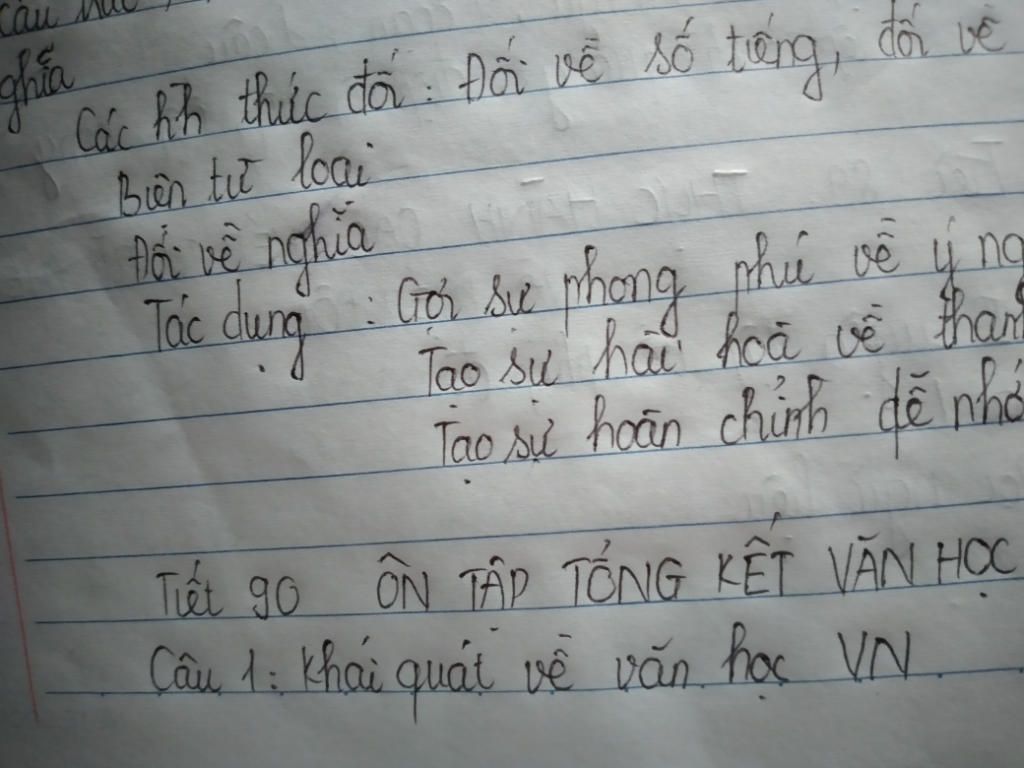 nghĩa
Các hh thức đối: Đối về số tiếng, đối về
Biên từ loại
Đối về nghĩa
Tác dụng : Gợi sự phong phú về ý
Tạo sự hài hoà về
Tạo sự hoàn chỉnh dễ nhớ
Tiết 90 ÔN TẬP TỔNG KẾT VĂN HỌC
Câu 1: Khái quát về văn học VN